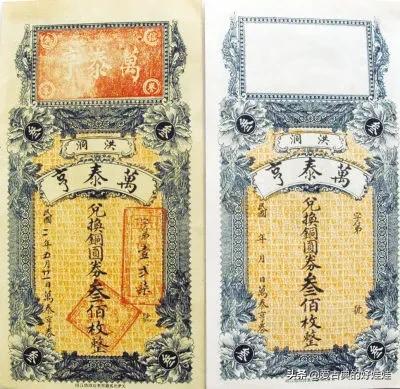 萬泰亨
洪洞
萬泰亨
字第壹弍柒號
兌換銅圓券叁佰枚整
民國二年五月廿一日萬泰亨券
洪洞
萬泰亨
字第 號
兌換銅圓券叁佰枚整
民國 年 月 日萬泰亨券
头条